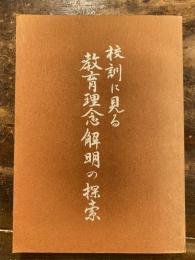 校訓に見る
教育理念解明の探索